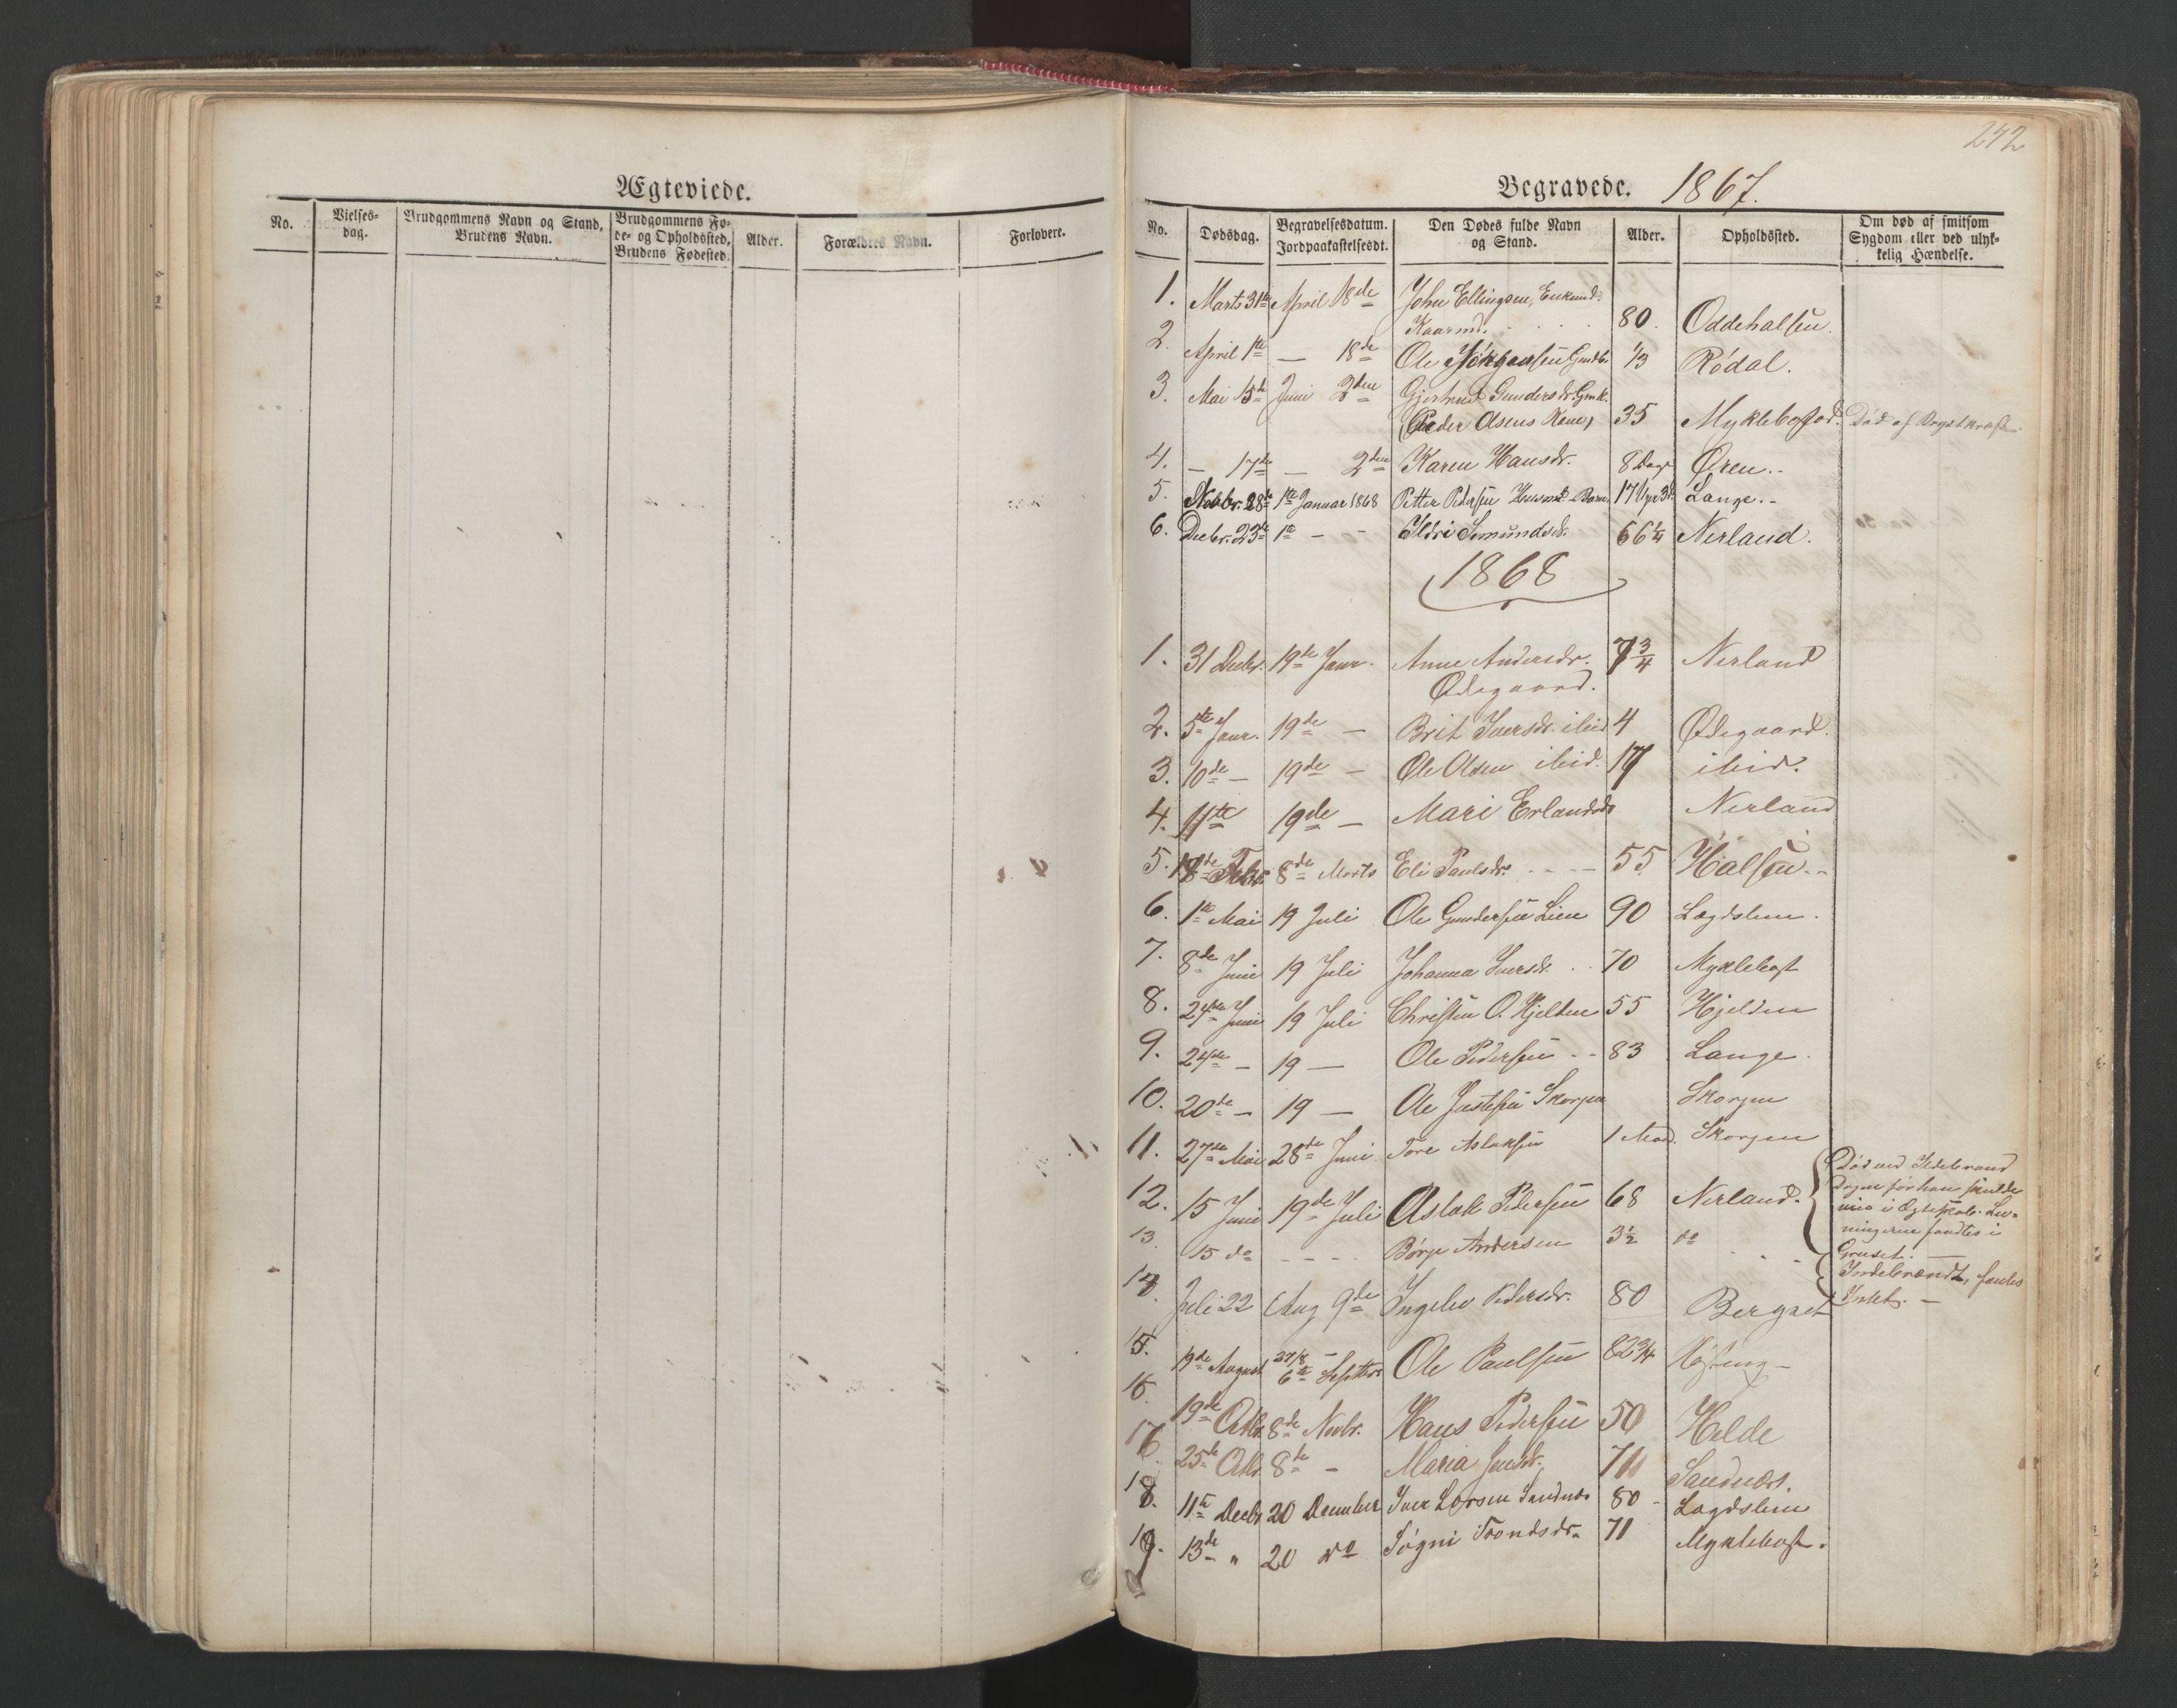 Ægteviede.
No. Vielses-dag. Brudgommens Navn og Stand, Brudens Navn. Brudgommens Fø-de- og Opholdssted, Brudens Fødested. Alder. Forældres Navn. Forlovere.
242
Begravede. 1867.
No. Dødsdag. Begravelsesdatum. Jordpaakastelsesdt. Den Dødes fulde Navn og Stand. Alder. Opholdssted. Om død af smitsom Sygdom eller ved ulyk-kelig Hændelse.
1. Marts 31te April 18de John Ellingsen, Enkemd.
Kaarmd. 80. Oddehalsen.
2. April 1ste — 18de Ole Jørgensen Gmdb. 1/3 Rødal.
3. Mai 15de Juni 2den Gjertrud Gundersdr. Gmk.
(Peder Olsens Kone) 35 Myklebostad. Død af Brystkræft.
4. — 17de — 2den Karen Hansdr. 8 Dage Øren.
5. Novbr. 28de 1ste Januar 1868 Petter Pedersen Huusmd. Barn Lange.
6. Decbr. 23de 1ste — - Ildri Semundsdr. 66¼ Nerland.
1868
1. 31 Decbr. 19de Janr. Anne Andersdr. 7¾ Nerland
Ødegaard.
2. 5te Janr. 19de — Brit Iversdr. ibid 4 Ødegaard.
3. 10de — 19de — Ole Olsen ibid. 17 ibid.
4. 11te 19de — Mari Erlandsdr Nerland
5. 18de Febr. 8de Marts Eli Paulsdr. 55 Halsen.
6. 1ste Mai 19 Juli Ole Gundersen Lien 90 Lægdslem.
7. 8de Juni 19 Juli Johanna Iversdr. 70 Myklebost
8. 24de Juni 19 Juli Christen O. Hjelden 55 Hjelden
9. 24de — 19 — Ole Pedersen 83 Lange.
10. 20de — 19 — Ole Justesen Skorgen Skorgen
11. 27de Mai 28de Juni Tore Aslaksen 1 Maad. Skorgen
12. 15 Juni 19de Juli Aslak Pedersen 68 Nerland. Død ved Ildebrand
Dagen før han skulde
vies i Ægteskab. Lev-
ningerne fandtes i
Gruset. —
13. 15 do - - - Børge Andersen 3½ do Indebrændt, fandtes
Intet. —
14. Juli 22 Aug 9de Ingelev Pedersdr. 80 Bergset
15. 19de August 27/8 6te Septbr. Ole Paulsen 82¾
16. 19de Octbr. 8de Novbr. Hans Pedersen 50 Helde
17. 25de Octbr. 8de — Maria Jensdr. 71 Sandnæs.
18. 11te Decbr. 20 December Iver Larsen Sandnæs 80 Lægdslem
19. 13de " 20 do Søgni Trondsdr. 71 Myklebost.